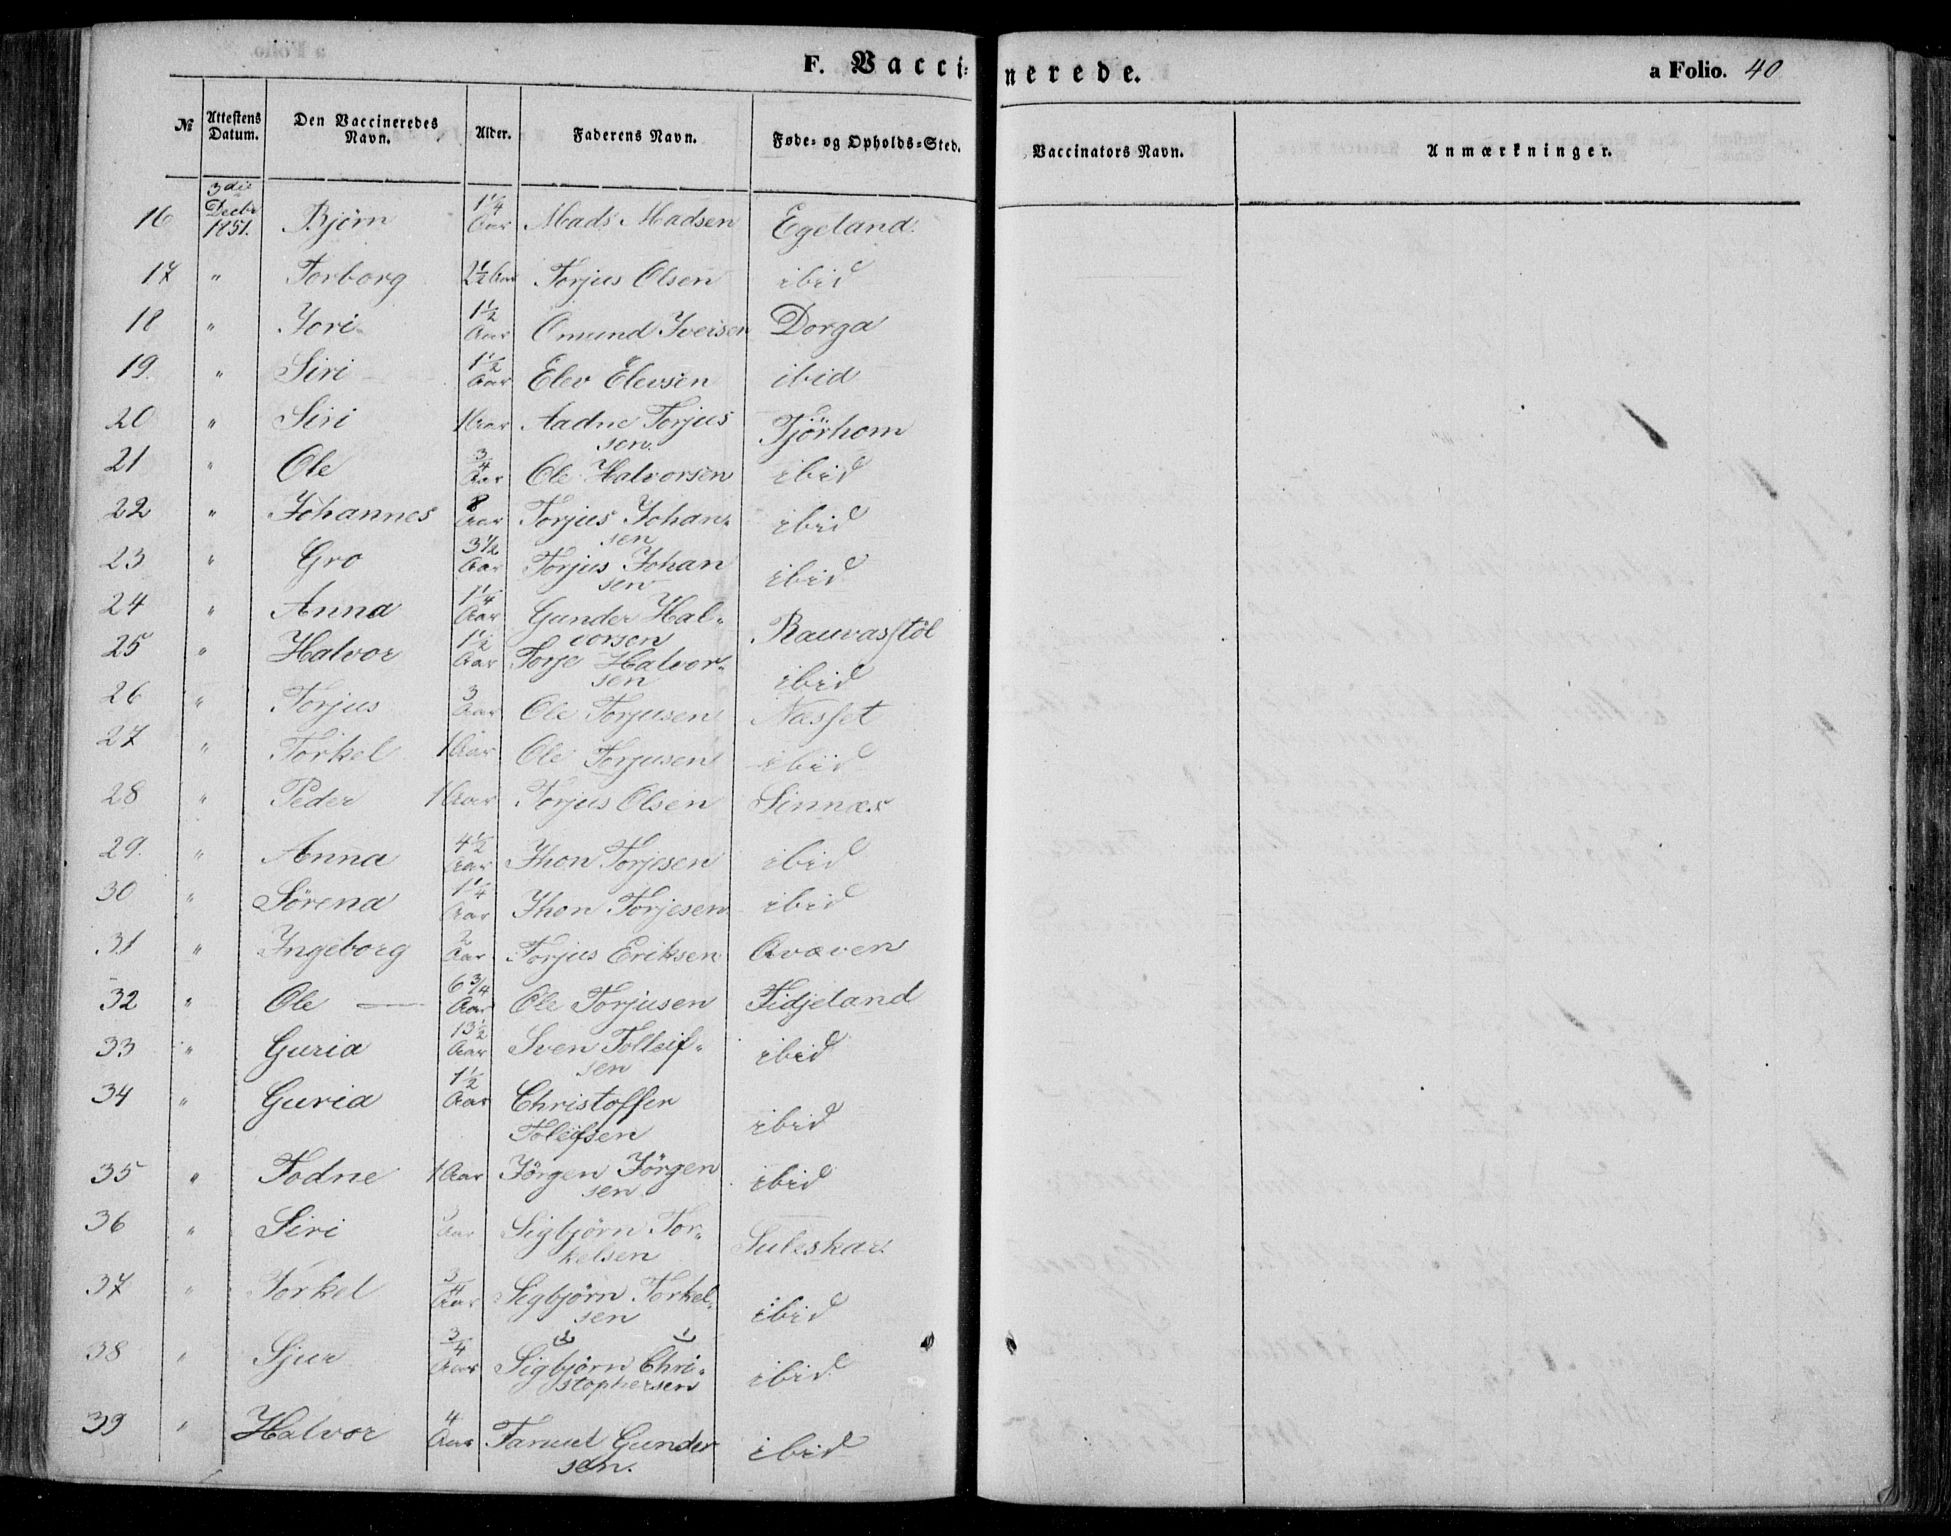 F. Vaccinerede.
a Folio. 40
№ Attestens Datum. Den Vaccineredes Navn. Alder. Faderens Navn. Føde- og Opholds-Sted. Vaccinators Navn. Anmærkninger.
16 3die Decbr 1851. Bjørn 1 1/4 Aar Mads Madsen Egeland
17 " Torborg 2 1/2 Aar Torjus Olsen ibid
18 " Jori 1 1/2 Aar Omund Iversen Dorga
19. " Siri 1 1/2 Aar Elev Elevsen ibid
20 " Siri 1 Aar Aadne Torjus
sen. Tjörhom
21 " Ole 3/4 Aar Ole Halvorsen ibid
22 " Johannes 8 Aar Torjus Johan-
sen ibid
23 " Gro 3 1/2 Aar Torjus Johan
sen ibid
24 " Anna 1 1/4 Aar Gunder Hal-
vorsen Rauvasstöl
25 " Halvor 1 1/2 Aar Torje Halvor-
sen ibid
26 " Torjus 3 Aar Ole Torjusen Nasset
27 " Torkel 1 Aar Ole Torjusen ibid
28 " Peder 1 Aar Torjus Olsen Sinnæs
29. " Anna 4 1/2 Aar Jhon Torjesen ibid
30 " Sörena 1 1/4 Aar Jhon Torjesen ibid
31 " Ingeborg 2 Aar Torjus Eriksen Qvæven
32 " Ole — 6 3/4 Aar Ole Torjusen Fidjeland
33 " Guria 13 1/2 Aar Sven Tolleif-
sen ibid
34 " Guria 1 1/2 Aar Christoffer
Toleifsen ibid
35 " Todne 1 Aar Jörgen Jörgen
sen ibid
36 " Siri Aar Sigbjörn Tor-
kelsen Suleskar
37 " Torkel 3/4 Aar Sigbjörn Torkel-
sen ibid
38 " Sjur 3/4 Aar Sigbjörn Chri-
stophersen ibid
39 " Halvor 4 Aar Taruel Gunder
sen. ibid